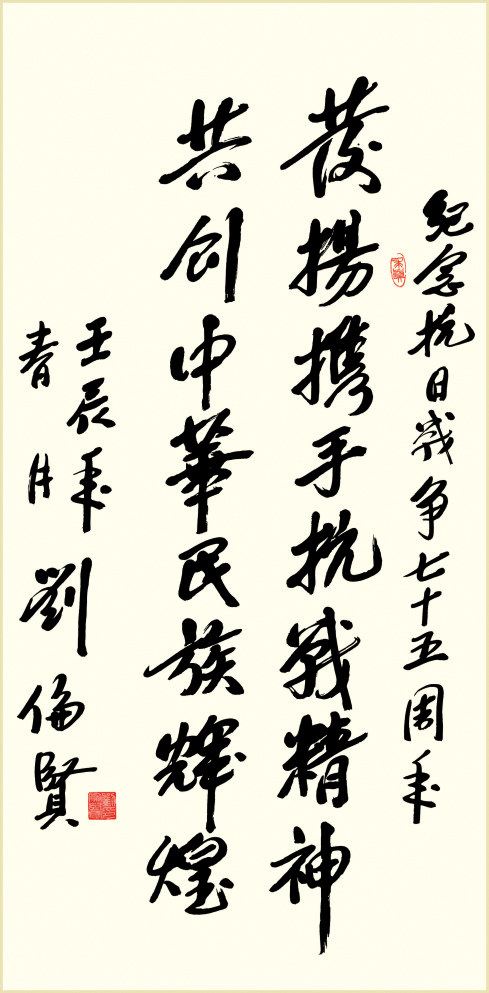 紀念抗日战争七十五周年
發揚携手抗战精神
共创中華民族輝煌
壬辰年
春月 劉倫賢